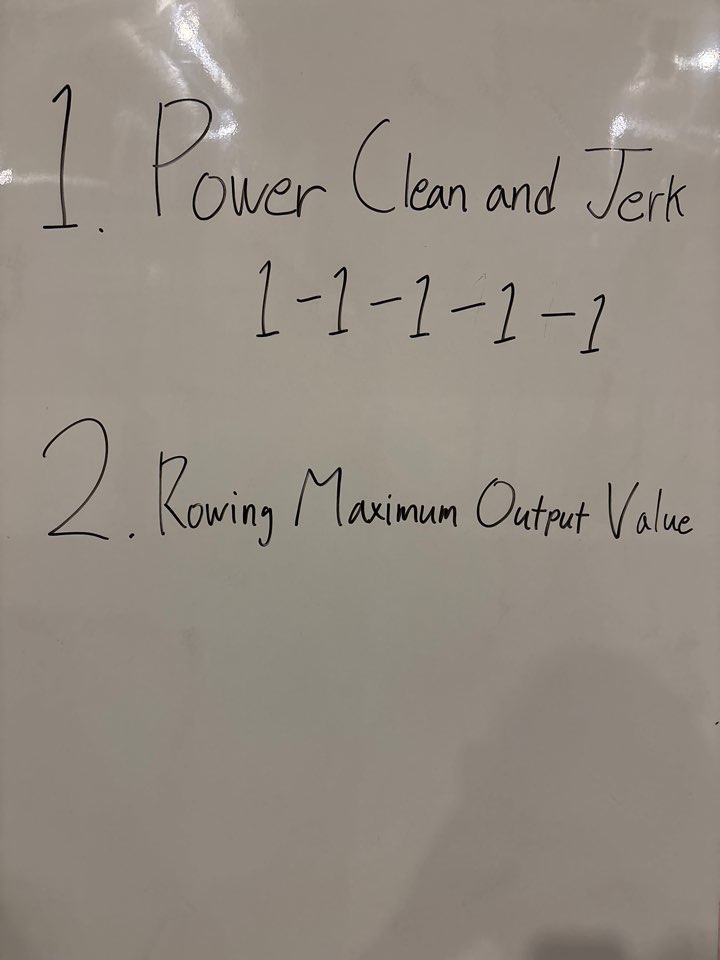 1. Power Clean and Jerk
1-1-1-1-1
2. Rowing Maximum Output Value